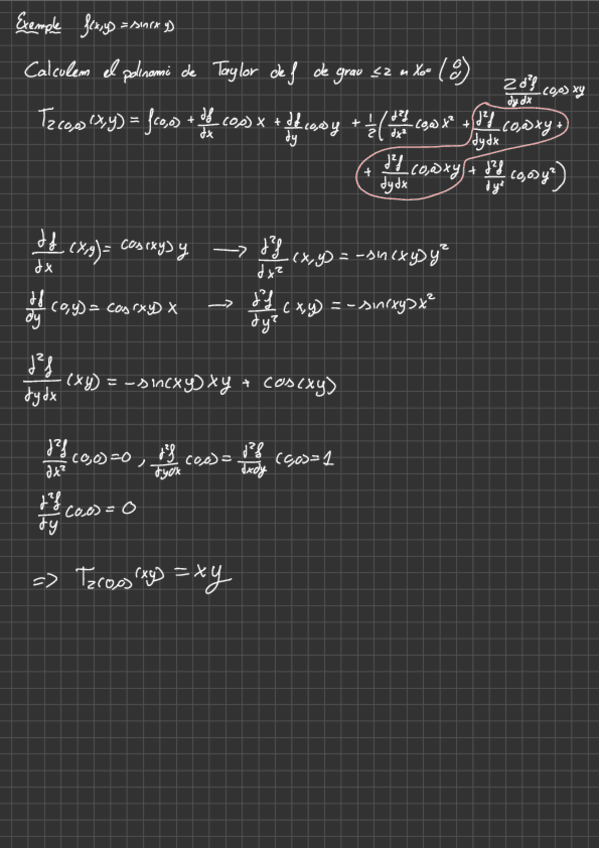 Exemple f(x,y) = sin(xy)
Calculem el polinomi de Taylor de f de grau ≤2 en x₀= (0 0)
2 ∂²f/∂y∂x (0,0) xy
T₂(0,0)(x,y) = f(0,0) + ∂f/∂x (0,0) x + ∂f/∂y (0,0) y + 1/2 ( ∂²f/∂x² (0,0) x² + ∂²f/∂y∂x (0,0) xy +
+ ∂²f/∂y∂x (0,0) xy + ∂²f/∂y² (0,0) y² )
∂f/∂x (x,y) = cos(xy) y → ∂²f/∂x² (x,y) = -sin(xy) y²
∂f/∂y (0,y) = cos(xy) x → ∂²f/∂y² (x,y) = -sin(xy) x²
∂²f/∂y∂x (xy) = -sin(xy) xy + cos(xy)
∂²f/∂x² (0,0) = 0 , ∂²f/∂y∂x (0,0) = ∂²f/∂x∂y (0,0) = 1
∂²f/∂y (0,0) = 0
=> T₂(0,0) (xy) = xy